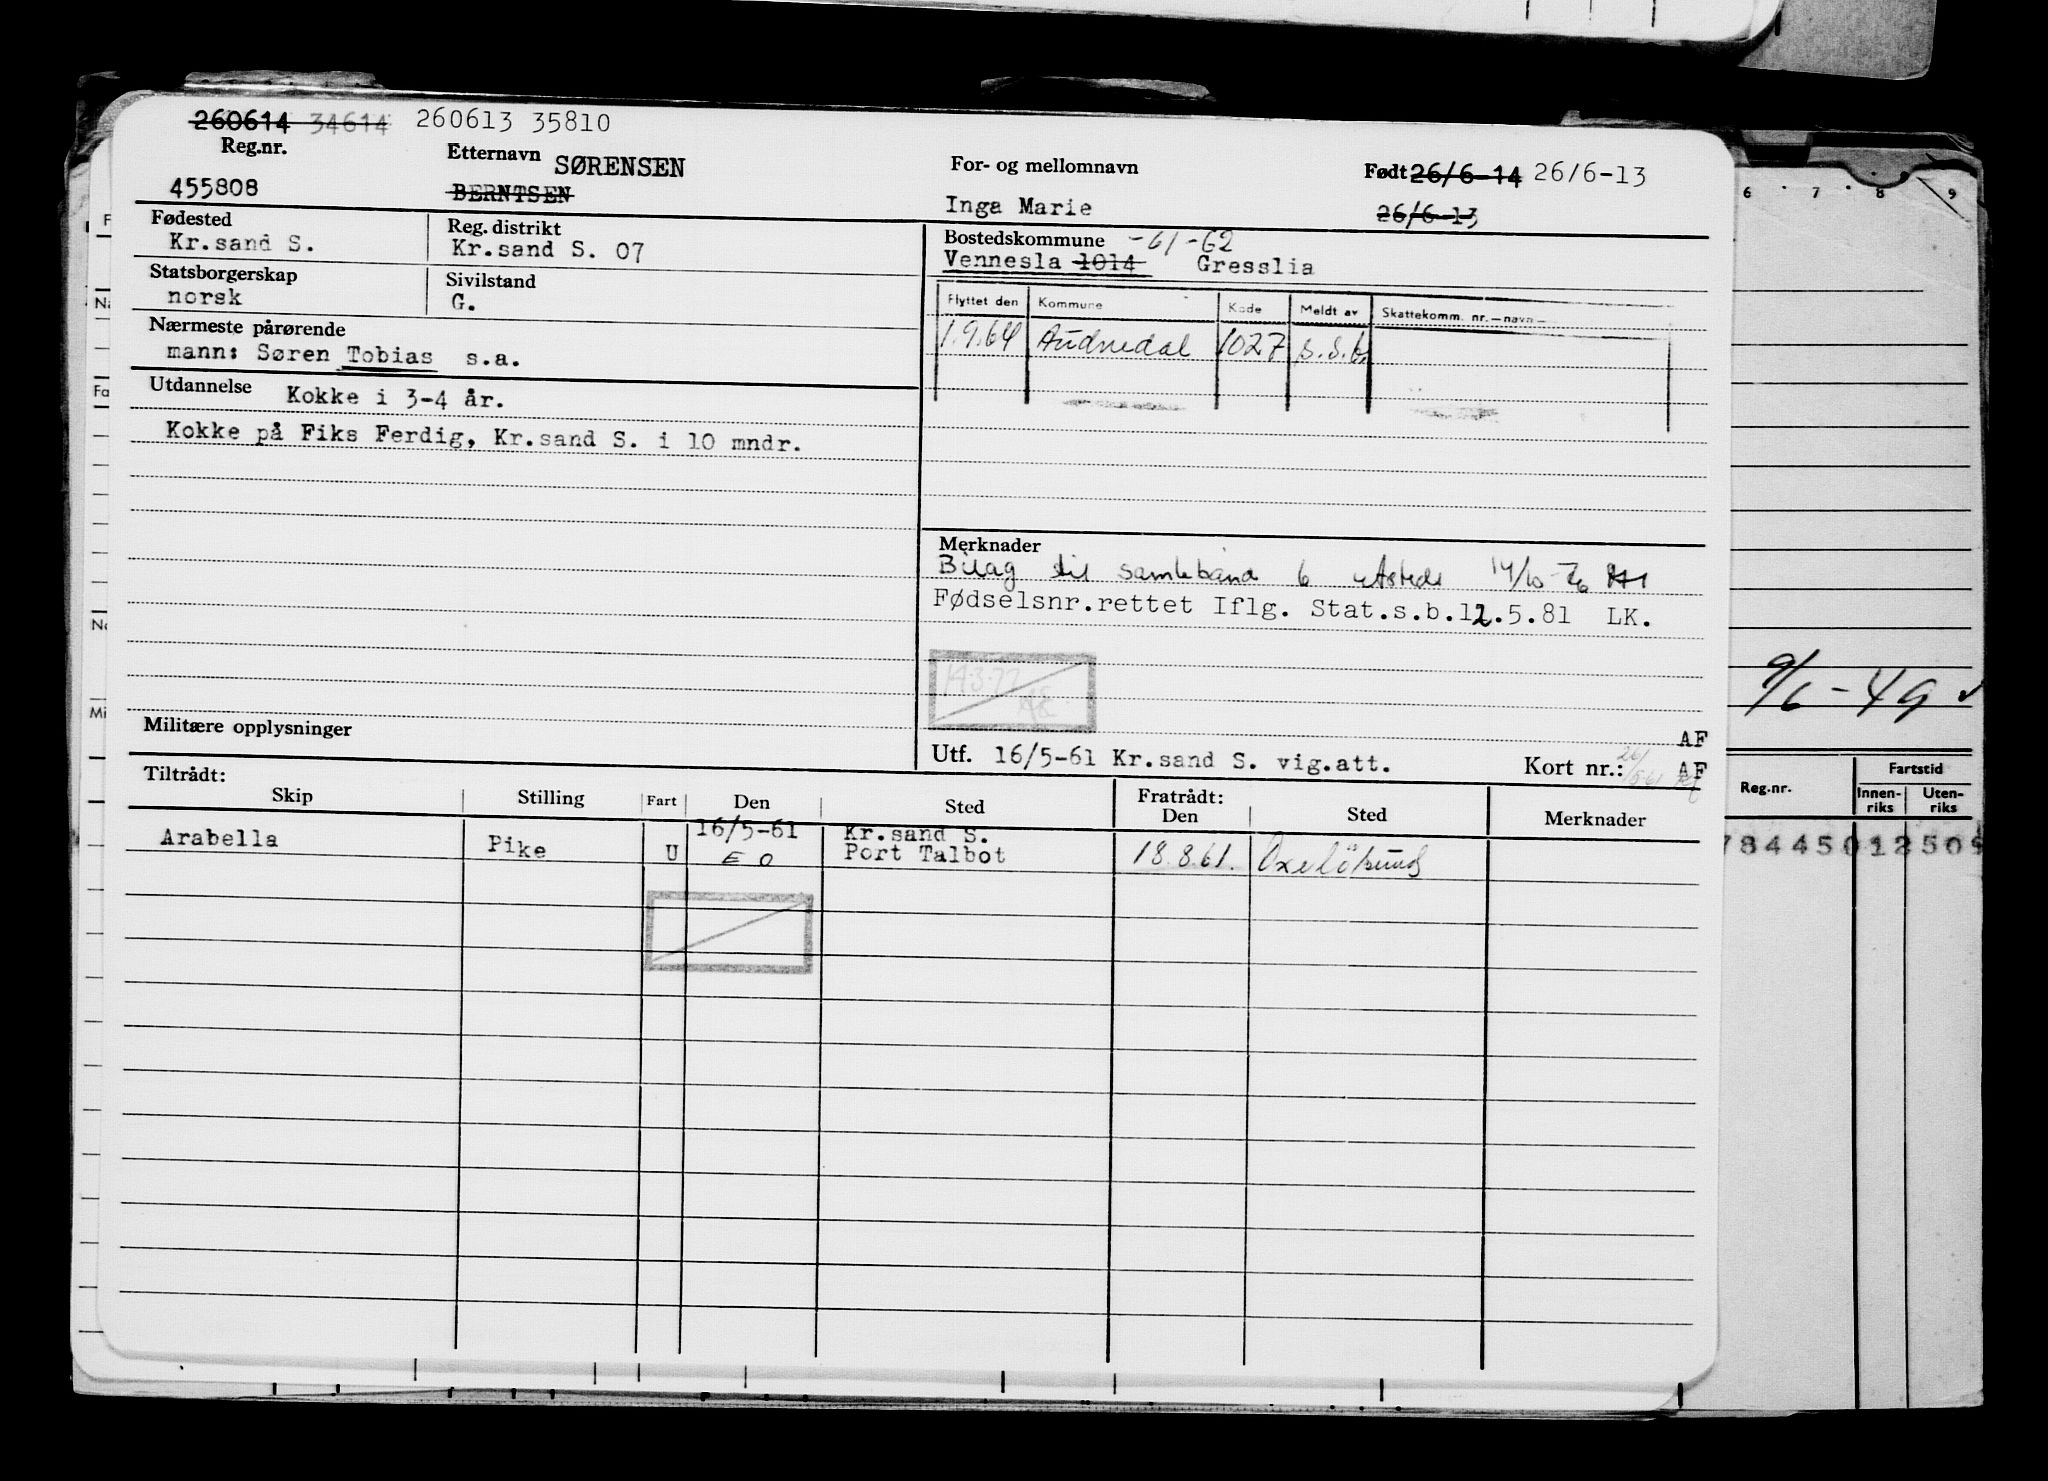 260614 34614 260613 35810
Reg.nr. Etternavn SØRENSEN For- og mellomnavn Født 26/6-14 26/6-13
455808 BERNTSEN Inga Marie 26/6-13
Fødested Reg. distrikt Bostedskommune -61-62
Kr.sand S. Kr.sand S. 07 Vennesla 1014 Gresslia
Statsborgerskap Sivilstand
norsk G.
Flyttet den Kommune Kode Meldt av Skattekomm. nr.—navn—
1.9.64 Audnedal 1027 s.s.b.
Nærmeste pårørende
mann: Søren Tobias s.a.
Utdannelse Kokke i 3-4 år.
Kokke på Fiks Ferdig, Kr.sand S. i 10 mndr.
Merknader
Bilag til samleband 6 utstedt 14/10-76
Fødselsnr.rettet Iflg. Stat.s.b.12.5.81 LK.
14.3.77
Militære opplysninger
AF
Utf. 16/5-61 Kr.sand S. vig.att. Kort nr.: AF
Tiltrådt: Fratrådt:
Skip Stilling Fart Den Sted Den Sted Merknader
Arabella Pike U 16/5-61 Kr.sand S.
E O Port Talbot 18.8.61. Oxelösund
6 7 8 9
9/6-49
Reg.nr. Fartstid
Innen-riks Uten-riks
7844501250
F
Na
Fa
No
Mi